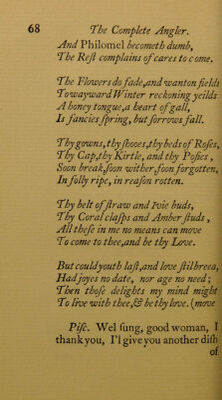 68 The Complete Angler.
And Philomel becometh dumb,
The Rest complains of cares to come.
The Flowers do fade, and wanton fields
To wayward Winter reckoning yeilds
A honey tongue, a heart of gall,
Is fancies spring, but sorrows fall.
Thy gowns, thy shooes, thy beds of Roses,
Thy Cap, thy Kirtle, and thy Posies,
Soon break, soon wither, soon forgotten,
In folly ripe, in reason rotten.
Thy belt of straw and Ivie buds,
Thy Coral clasps and Amber studs,
All these in me no means can move
To come to thee, and be thy Love.
But could youth last, and love stil breed,
Had joyes no date, nor age no need;
Then those delights my mind might move
To live with thee, & be thy love.
Pisc. Wel sung, good woman, I
thank you, I'l give you another dish
of